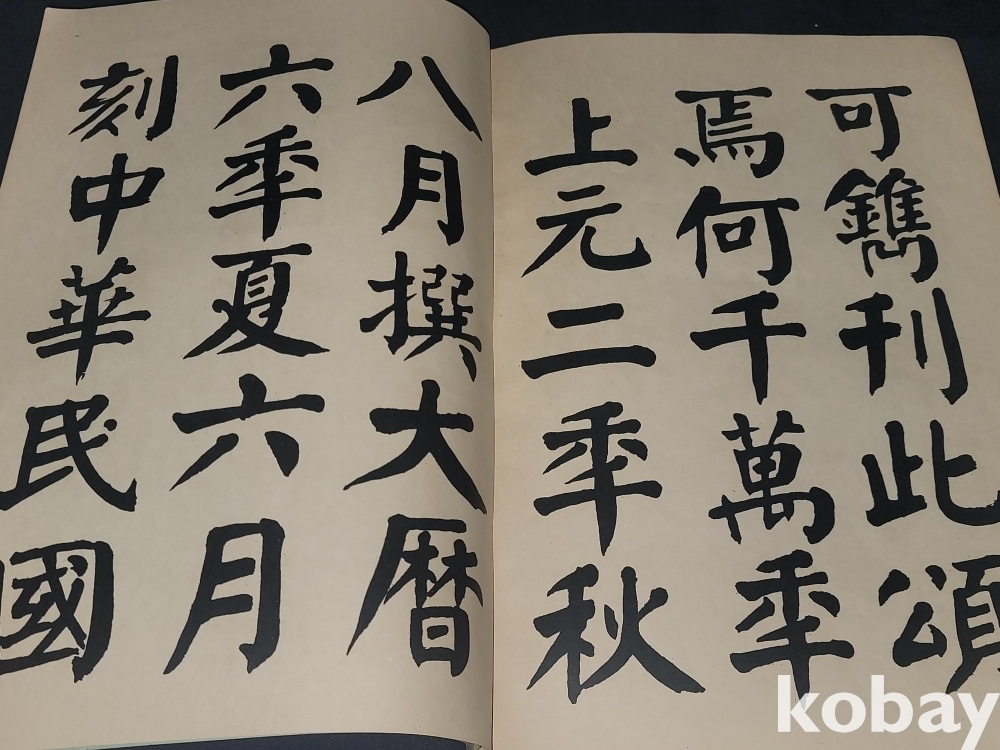 可鐫刊此頌
焉何千萬秊
上元二秊秋
八月撰大曆
六秊夏六月
刻中華民國
kobay